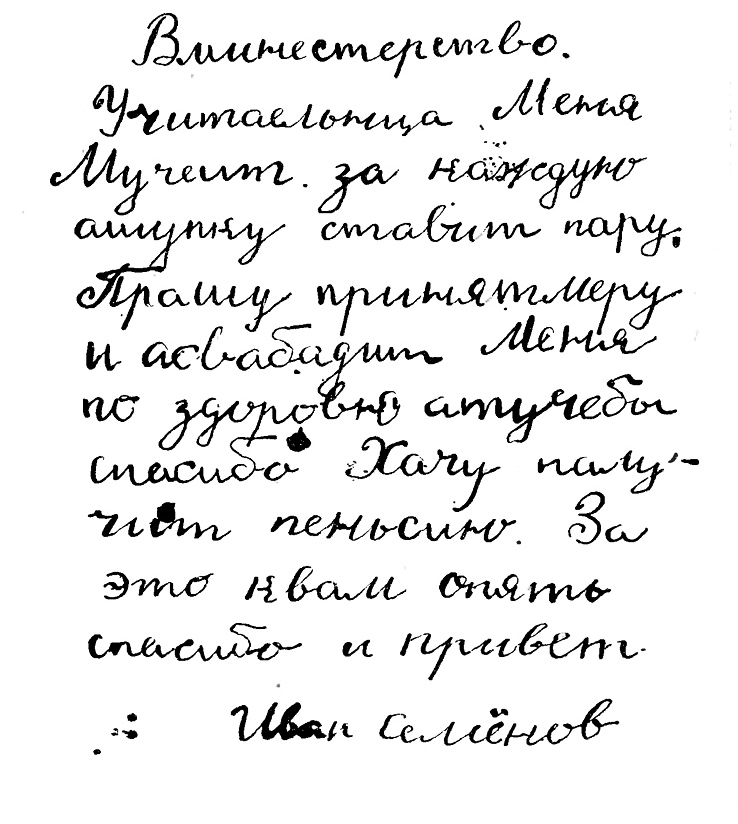 Вминестерство.
Учитаельница Меня
Мучеит. за каждую
ашупку ставит пару.
Прашу принятмеру
и асвабадит Меня
по здоровю атучебы
спасибо Хачу палу-
чит пеньсию. За
это квам опять
спасибо и привет.
Иван Семёнов